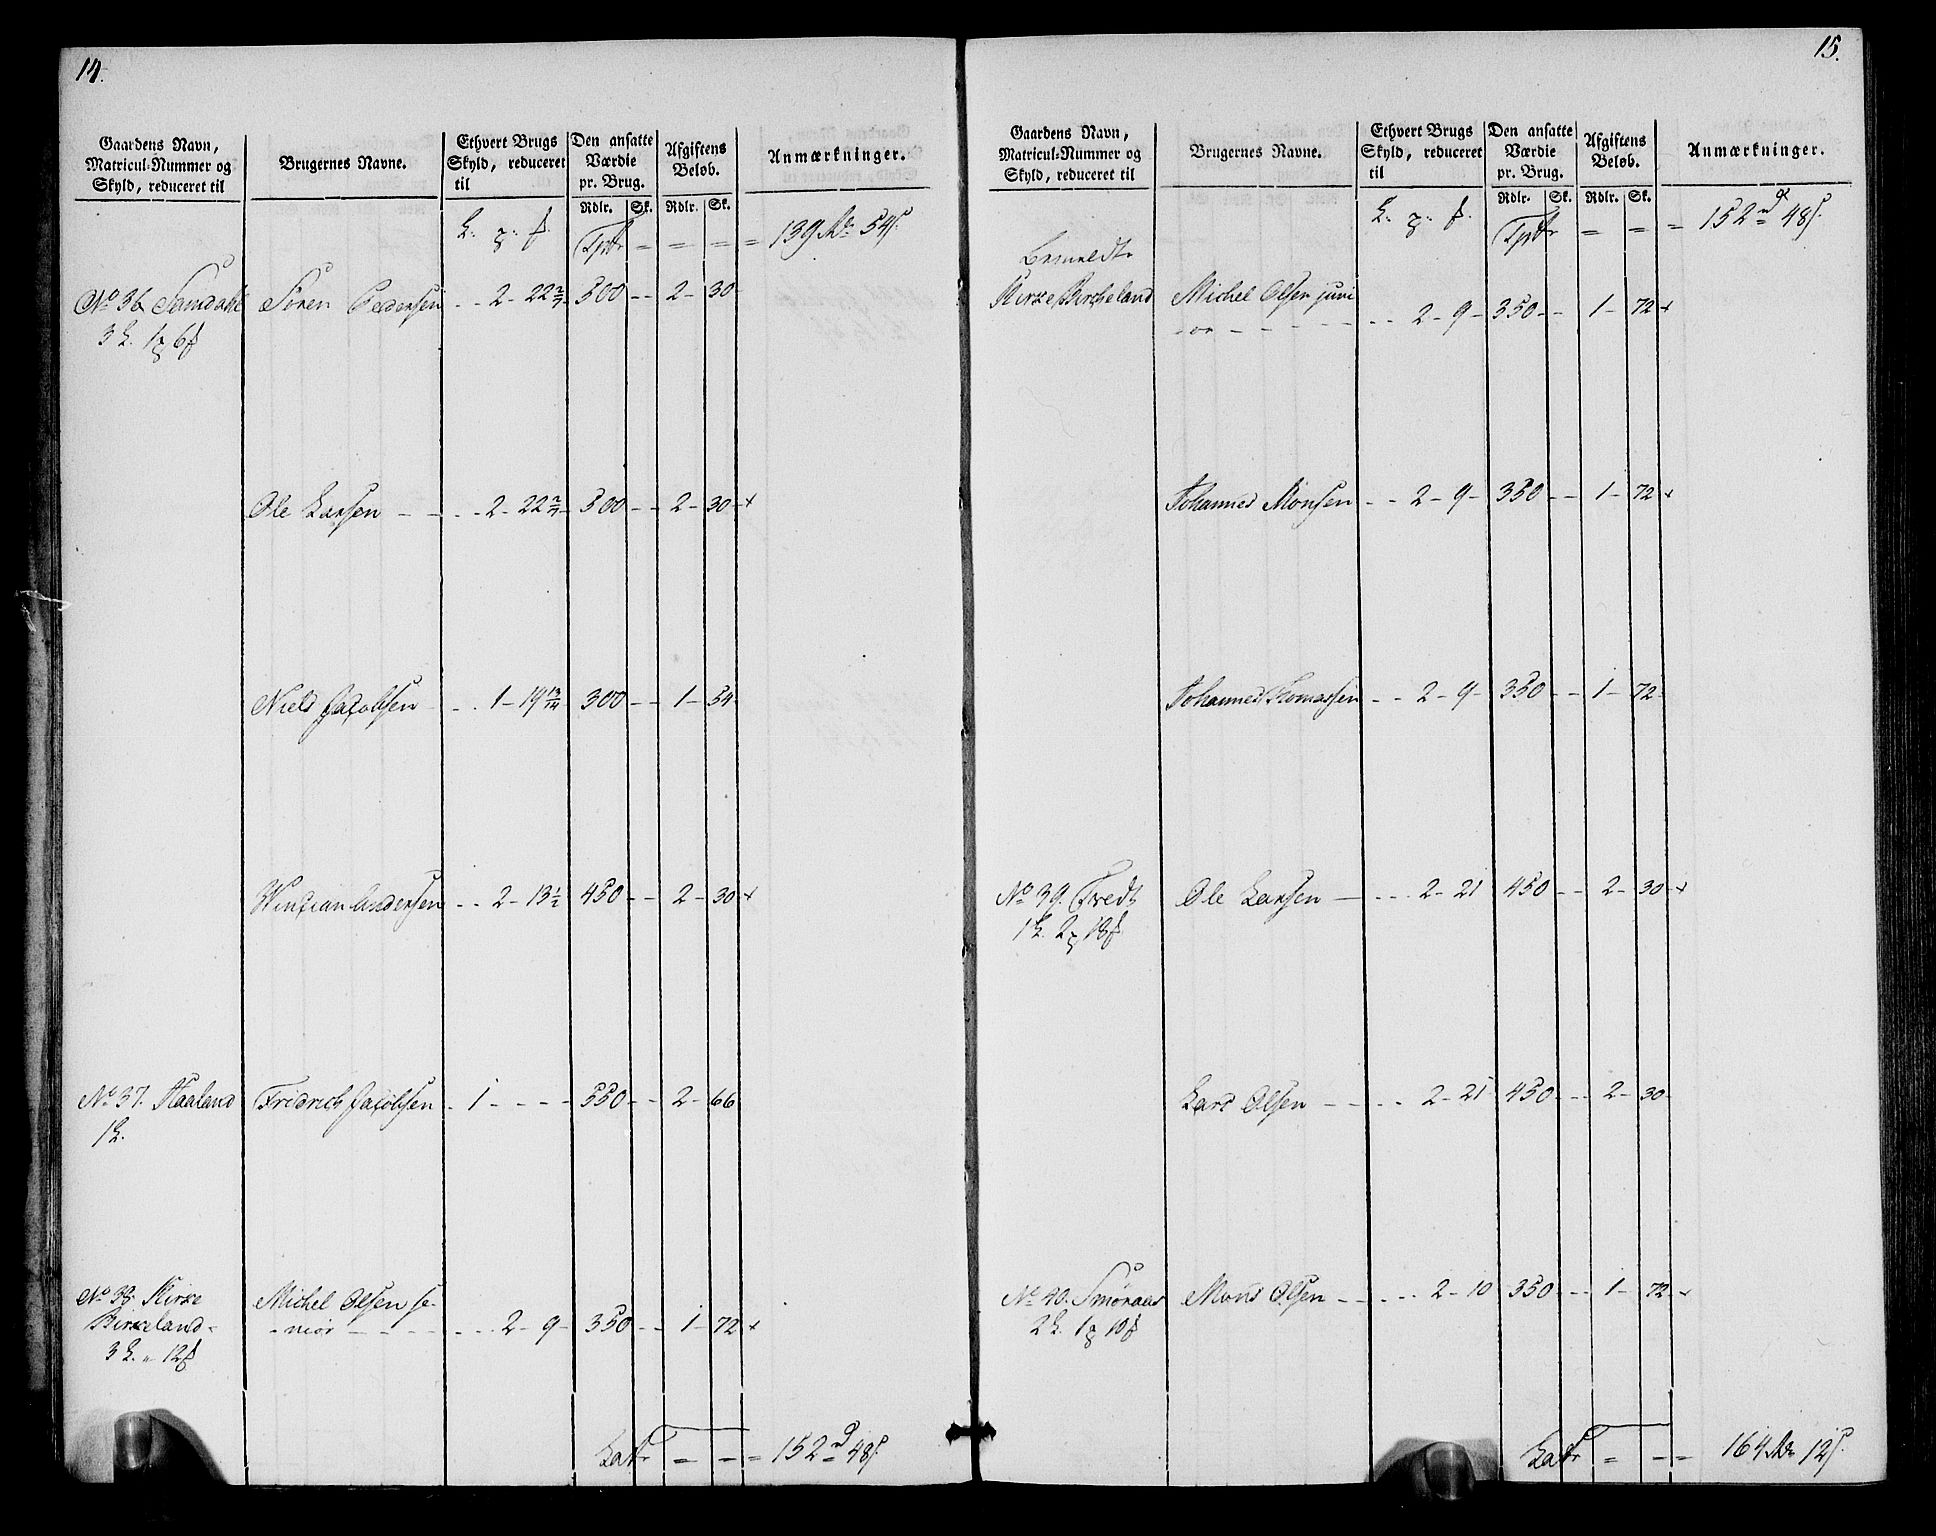 14.
Gaardens Navn, Matricul-Nummer og Skyld, reduceret til
Brugernes Navne.
Ethvert Brugs Skyld, reduceret til
Den ansatte Værdie pr. Brug.
Afgiftens Beløb.
Anmærkninger.
Rdlr. Sk. Rdlr. Sk.
Tpt = = = = 139 Rdr 54 s.
No 36 Sandahl Sören Pedersen - - 2 - 22 2/7 500 - - 2 - 30
3 L. 1 6
Ole Larsen - - - 2 - 22 2/7 500 - - 2 - 30 +
Niels Jacobsen - - 1 - 19 13/14 300 - - 1 - 54
Andersen - - 2 - 13 1/2 450 - - 2 - 30 +
No 37. Haaland Fridrich Jacobsen - 1 - - - - 550 - - 2 - 66
1 L.
No 38. Kirke Michel Olsen se-
Birkeland - - nior - - - - - 2 - 9 - 350 - - 1 - 72 +
3 L. " 12
Lat = - = 152 48 s.
15.
Gaardens Navn, Matricul-Nummer og Skyld, reduceret til
Brugernes Navne.
Ethvert Brugs Skyld, reduceret til
Den ansatte Værdie pr. Brug.
Afgiftens Beløb.
Anmærkninger.
Rdlr. Sk. Rdlr. Sk.
Tpt = = = 152 48 s.
Bemeldte
Kirke Bircheland Michel Olsen juni
- or - - - - - - - 2 - 9 - 350 - - 1 - 72 +
Johannes Monsen - - 2 - 9 - 350 - - 1 - 72 +
Johannes Thomassen - - 2 - 9 - 350 - - 1 - 72
No 39. Tvedt Ole Larsen - - - - 2 - 21 450 - - 2 - 30 +
1 L. 2 18
Lars Olsen - - - - 2 - 21 450 - - 2 - 30
No 40. Smøraas Mons Olsen - - - - 2 - 10 350 - - 1 - 72 -
2 L. 1 10
Lat = - = 164 Rdr 12 s.